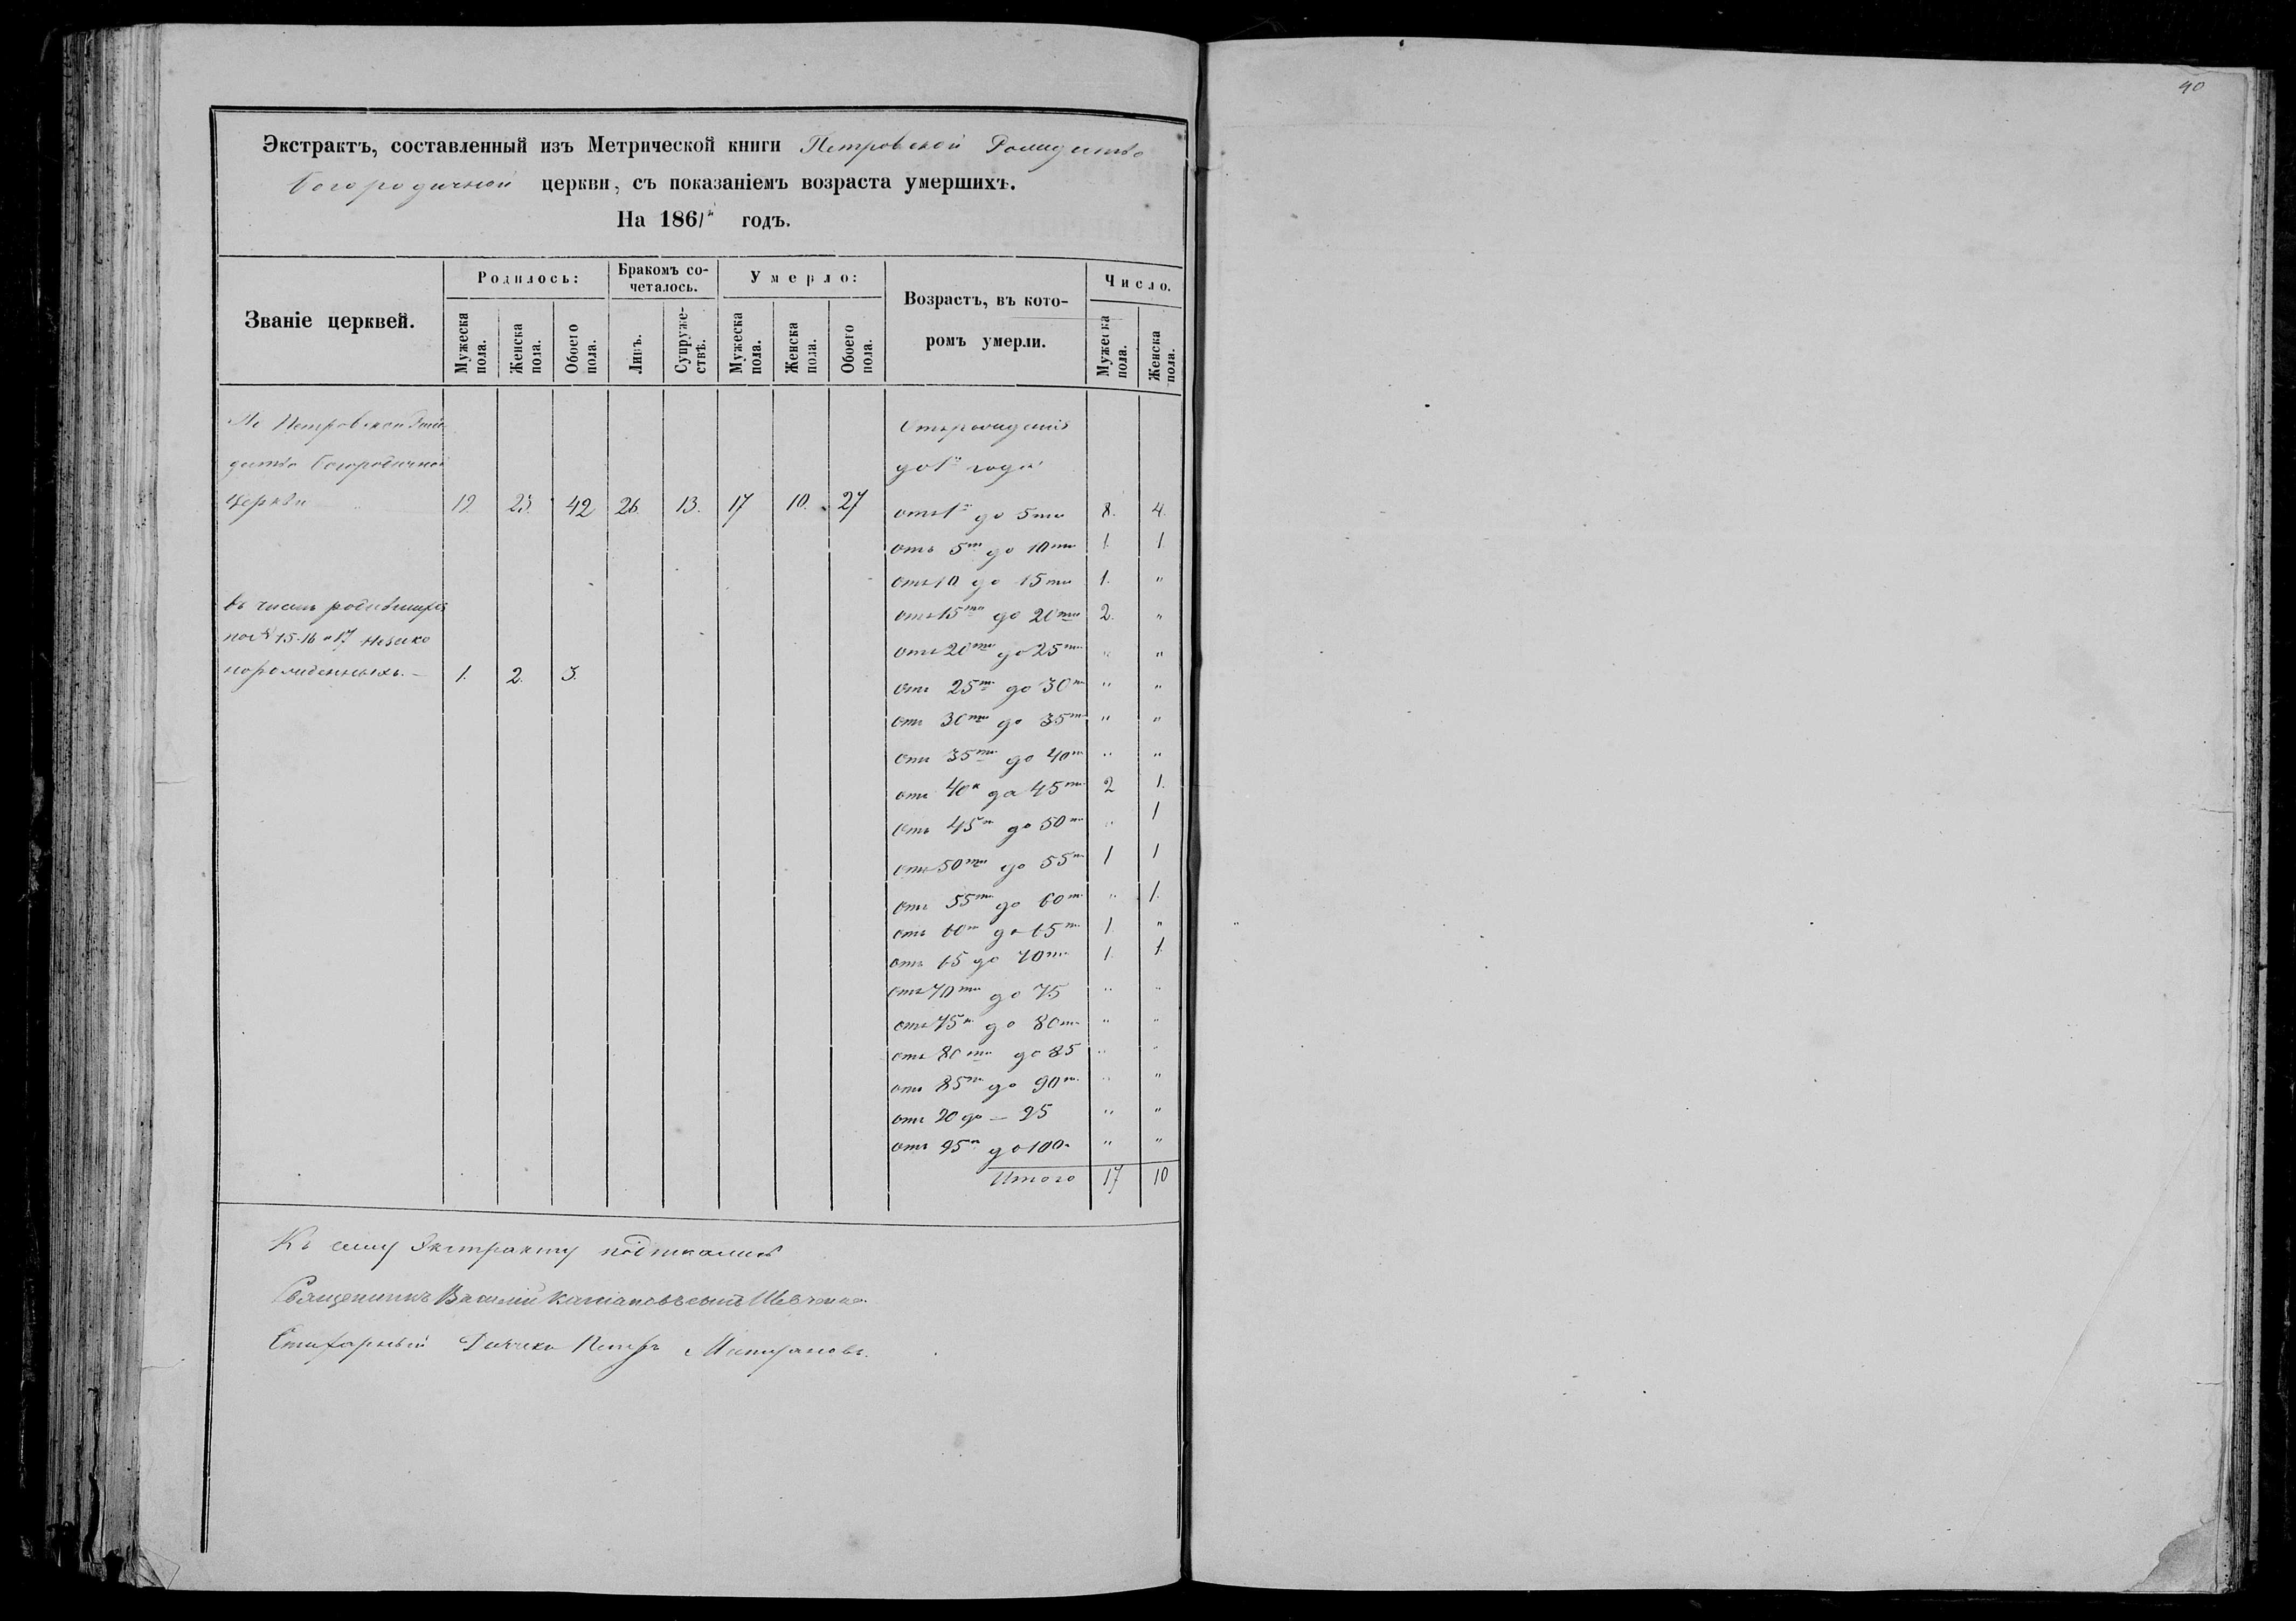 40
Экстрактъ, составленный изъ Метрической книги Петровской Рождество
богородичной церкви, съ показаніемъ возраста умершихъ.
На 1861й годъ.
Званіе церквей.
Родилось:
Бракомъ со-
четалось.
Умерло:
Возрастъ, въ кото-
ромъ умерли.
Число.
Мужеска пола.
Женска пола.
Обоего пола.
Лицъ.
Супруже-
ствъ.
Мужеска пола.
Женска пола.
Обоего пола.
Мужеска пола.
Женска пола.
Петровской Рож
дество богородичной
Церкви 19. 23. 42 26. 13. 17 10. 27
Отърожденія
до 1го года
отъ 1го до 5ти 8. 4.
отъ 5ти до 10ти 1. 1
отъ 10 до 15ти 1. "
отъ 15ти до 20ти 2. "
отъ 20ти до 25ти " "
отъ 25ти до 30ти " "
отъ 30ти до 35ти " "
отъ 35ти до 40ти " "
отъ 40а до 45ти 2 1.
отъ 45ти до 50ти " 1
отъ 50ти до 55ти 1 1
отъ 55ти до 60ти " 1.
отъ 60ти до 65ти 1. "
отъ 65 до 70ти 1. 1.
отъ 70ти до 75 " "
отъ 75ти до 80ти " "
отъ 80ти до 85 " "
отъ 85ти до 90ти " "
отъ 90 до — 95 " "
отъ 95ти до 100 " "
Итого 17 10
въ числѣ родившихся
по № 15. 16 и 17 незако
норожденныхъ. — 1. 2. 3.
Къ сему Экстракту подписались
Священникъ Василій сынъ Шевченко
Стихарный Дьячекъ Петръ Митрановъ.